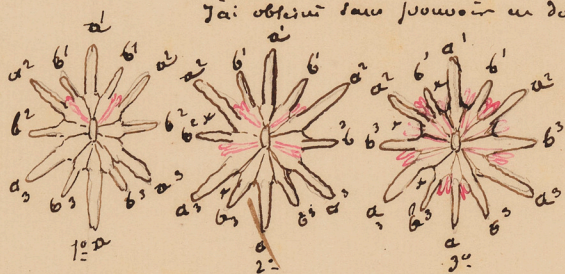 J'ai obtenu sans pouvoir en do
a¹
a² b¹ b¹ a²
b² b²
a³ b³ b³ a³
1º a
a¹
a² b¹ b¹ a²
b² x b³
a³ b³ x b³ a³
a
2º
a¹
a² b¹ x b¹ a²
b³ x b³
a³ b³ x b³ a³
a
3º